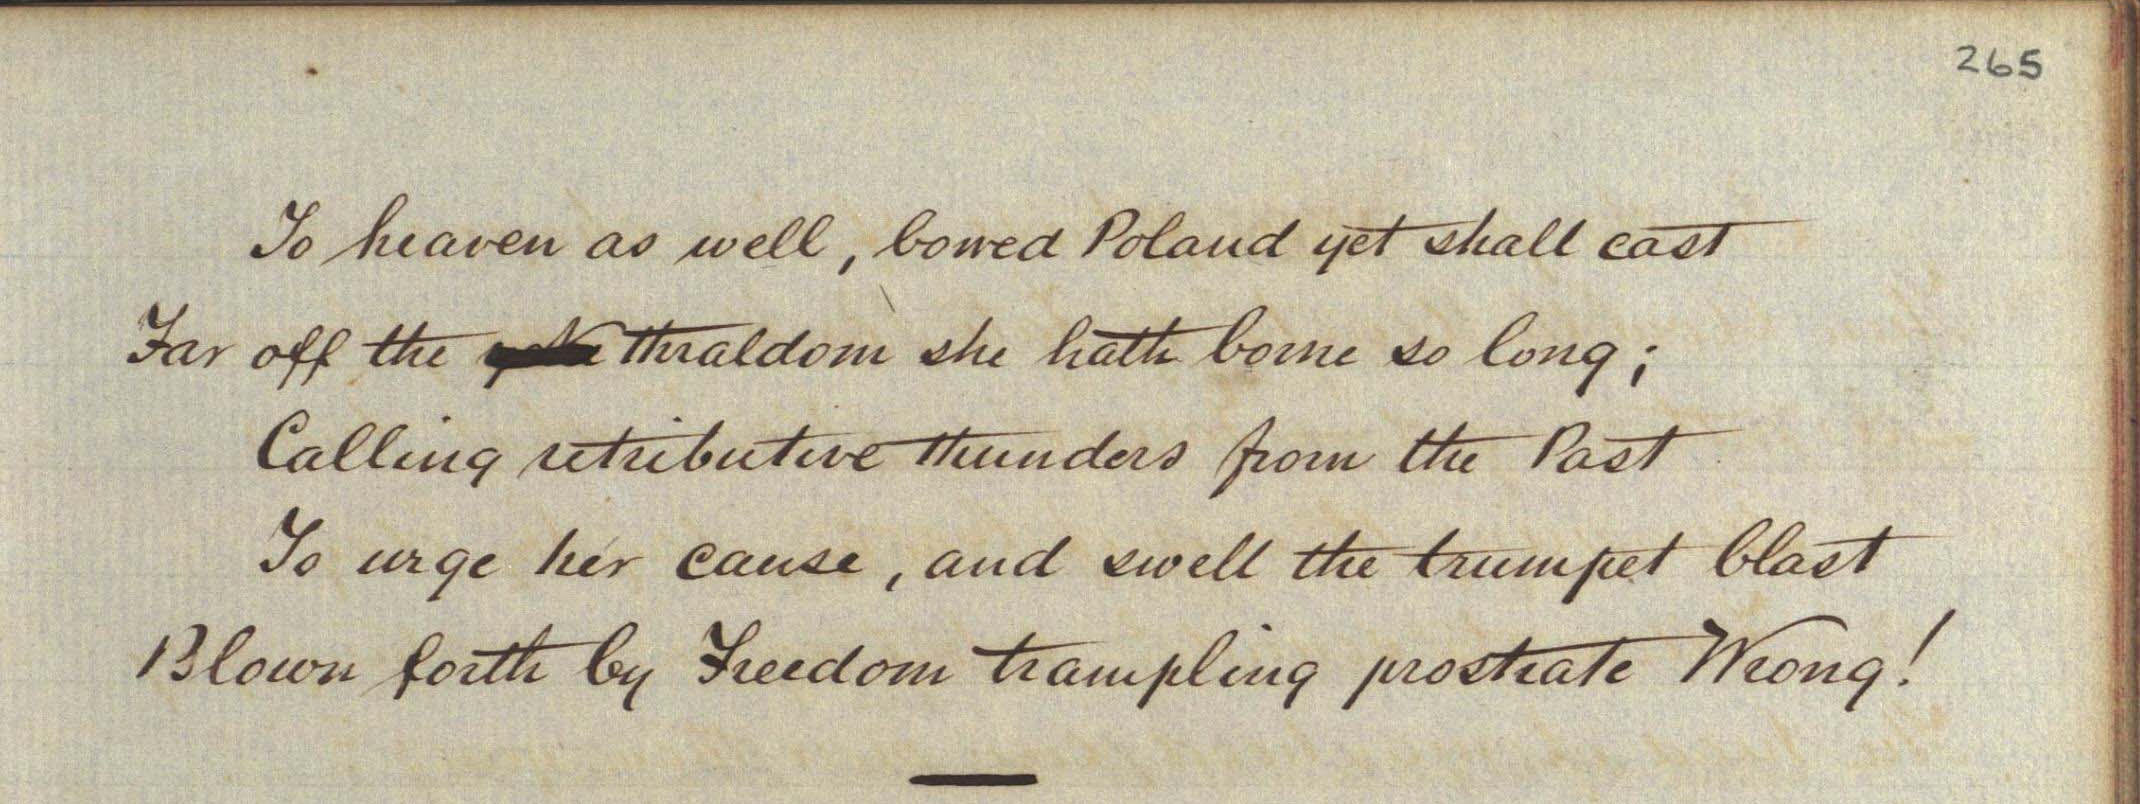 265
To heaven as well, bowed Poland yet shall cast
Far off the thraldom she hath borne so long;
Calling retributive thunders from the Past
To urge her cause, and swell the trumpet blast
Blown forth by Freedom trampling prostrate Wrong!